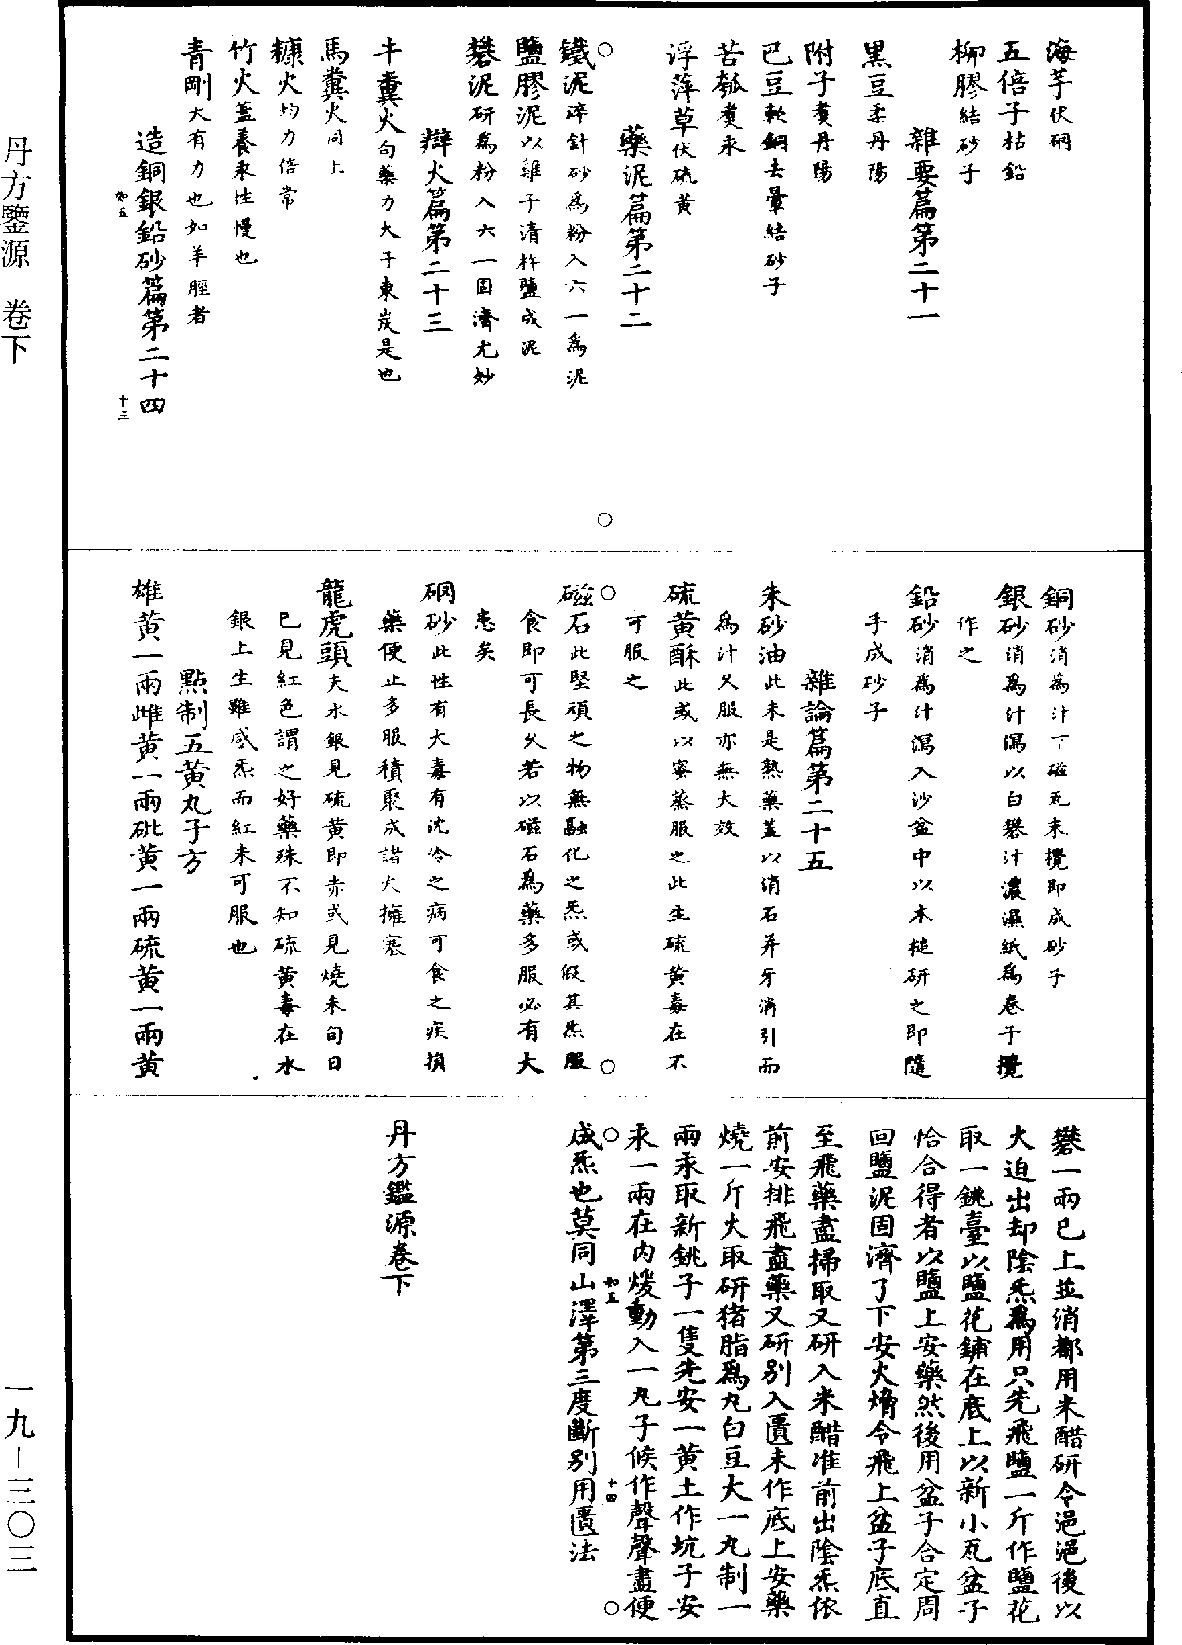 海芋伏硇
五倍子枯鉛
柳膠結砂子
雜要篇第二十一
黑豆柔丹陽
附子煑丹陽
巴豆軟銅去暈結砂子
苦瓠煑汞
浮萍草伏硫黃
藥泥篇第二十二
鐵泥碎針砂為粉入六一為泥
鹽膠泥以雞子清杵鹽成泥
礬泥研為粉入六一固濟尤妙
辯火篇第二十三
牛糞火句藥力大子東炭是也
馬糞火同上
糠火均力倍常
竹火蓋養汞性慢也
青剛大有力也如羊脛者
造銅銀鉛砂篇第二十四
如五
十三
銅砂消為汁丁磁瓦末攪即成砂子
銀砂消為汁瀉以白礬汁濃濕紙為卷子攪
作之
鉛砂消為汁瀉入沙盆中以木槌研之即隨
手成砂子
雜論篇第二十五
朱砂油此末是熱藥蓋以消石并牙消引而
為汁久服亦無大效
硫黃酥此或以蜜蒸服之此生硫黃毒在不
可服之
磁石此堅頑之物無融化之炁或假其炁服
食即可長久若以磁石為藥多服必有大
患矣
硇砂此性有大毒有沈冷之病可食之疾損
藥便止多服積聚成諸大擁塞
龍虎頭夫水銀見硫黃即赤或見燒未旬日
已見紅色謂之好藥殊不知硫黃毒在水
銀上生雖感炁而紅未可服也
點制五黃丸子方
雄黃一兩雌黃一兩砒黃一兩硫黃一兩黃
礬一兩已上並消都用米醋研令浥浥後以
火迫出却陰炁為用只先飛鹽一斤作鹽花
取一銚臺以鹽花鋪在底上以新小瓦盆子
恰合得者以鹽上安藥然後用盆子合定周
回鹽泥固濟了下安火㷟令飛上盆子底直
至飛藥盡掃取又研入米醋准前出陰炁依
前安排飛盡藥又研別入匱末作底上安藥
燒一斤火取研猪脂為丸白豆大一丸制一
兩汞取新銚子一隻先安一黃土作坑子安
汞一兩在內煖動入一丸子候作聲聲盡便
成炁也莫同山澤第三度斷別用匱法
如五
十四
丹方鑑源卷下
丹方鑒源　卷下
一九—三〇三